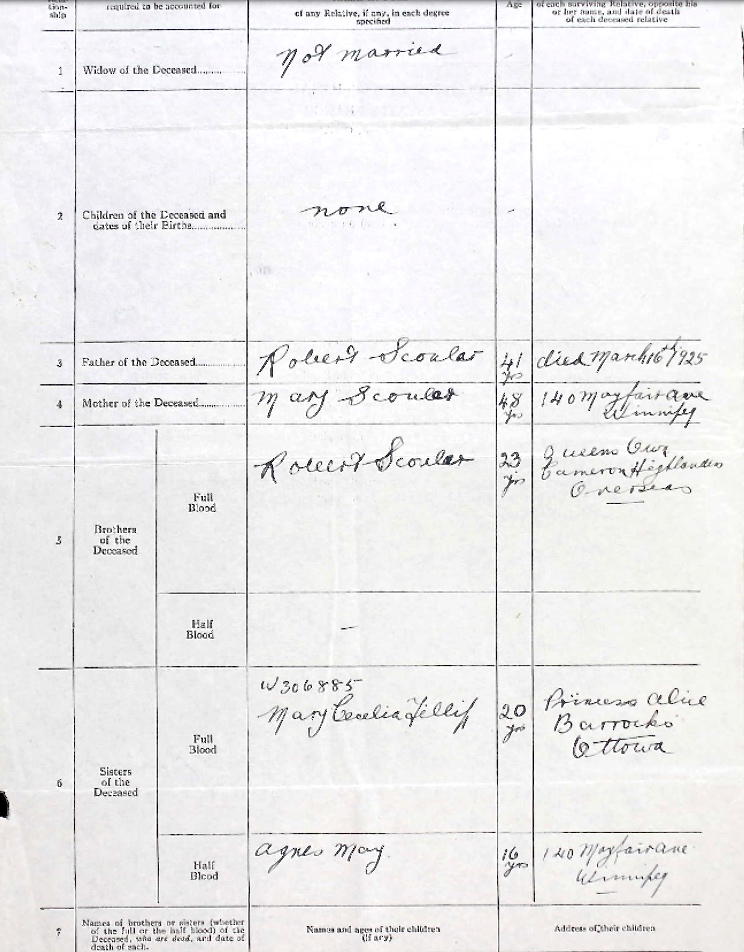 tion-
ship
required to be accounted for
of any Relative, if any, in each degree
specified
Age
of each surviving Relative, opposite his
or her name, and date of death
of each deceased relative
1 Widow of the Deceased......... Not married
2 Children of the Deceased and
dates of their Births.................. none -
3 Father of the Deceased................ Robert Scoular 41 yrs died March 16th 1925
4 Mother of the Deceased............... Mary Scoular 48 yrs 140 Mayfair Ave
Winnipeg
5 Brothers
of the
Deceased
Full
Blood
Robert Scoular 23 yrs Queens Own
Cameron Highlanders
Overseas
Half
Blood
—
6 Sisters
of the
Deceased
Full
Blood
W306885
Mary Cecelia 20 yrs Princess Alice
Barracks
Ottowa
Half
Blood
Agnes May 16 yrs 140 Mayfair Ave
Winnipeg
7 Names of brothers or sisters (whether
of the full or the half blood) of the
Deceased, who are dead, and date of
death of each.
Names and ages of their children
(if any)
Address of their children